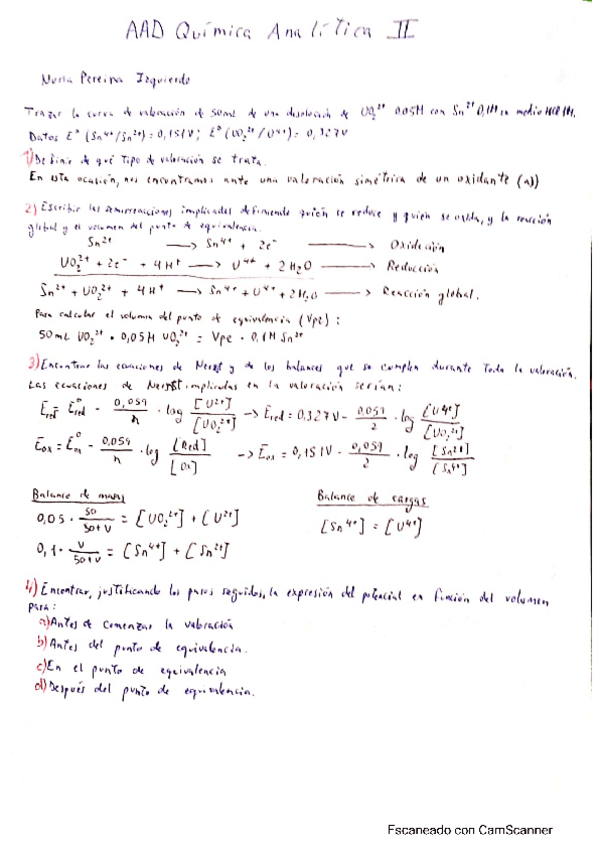 AAD Química Analítica II
Nuria Pereira Izquierdo
Trazar la curva de valoración de 50mL de una disolución de UO₂²⁺ 0.05M con Sn²⁺ 0,1M en medio HCl 1M.
Datos E° (Sn⁴⁺/Sn²⁺) = 0,151V; E° (UO₂²⁺/U⁴⁺) = 0,327V
1) Definir de qué tipo de valoración se trata.
En esta ocasión, nos encontramos ante una valoración simétrica de un oxidante (a))
2) Escribir las semirreacciones implicadas definiendo quién se reduce y quien se oxida, y la reacción
global y el volumen del punto de equivalencia.
Sn²⁺ → Sn⁴⁺ + 2e⁻ → Oxidación
UO₂²⁺ + 2e⁻ + 4H⁺ → U⁴⁺ + 2H₂O → Reducción
Sn²⁺ + UO₂²⁺ + 4H⁺ → Sn⁴⁺ + U⁴⁺ + 2H₂O → Reacción global.
Para calcular el volumen del punto de equivalencia (Vpe):
50mL UO₂²⁺ · 0,05M UO₂²⁺ = Vpe · 0,1M Sn²⁺
3) Encontrar las ecuaciones de Nernst y de los balances que se cumplen durante toda la valoración.
Las ecuaciones de Nernst implicadas en la valoración serían:
Ered = E°red - 0,059/n · log [U²⁺]/[UO₂²⁺] → Ered = 0,327V - 0,059/2 · log [U⁴⁺]/[UO₂²⁺]
Eox = E°ox - 0,059/n · log [Red]/[Ox] → Eox = 0,151V - 0,059/2 · log [Sn²⁺]/[Sn⁴⁺]
Balance de masas
Balance de cargas
0,05 · 50/50+V = [UO₂²⁺] + [U²⁺]
[Sn⁴⁺] = [U⁴⁺]
0,1 · V/50+V = [Sn⁴⁺] + [Sn²⁺]
4) Encontrar, justificando los pasos seguidos, la expresión del potencial en función del volumen
para:
a) Antes de comenzar la valoración
b) Antes del punto de equivalencia.
c) En el punto de equivalencia
d) Después del punto de equivalencia.
Escaneado con CamScanner